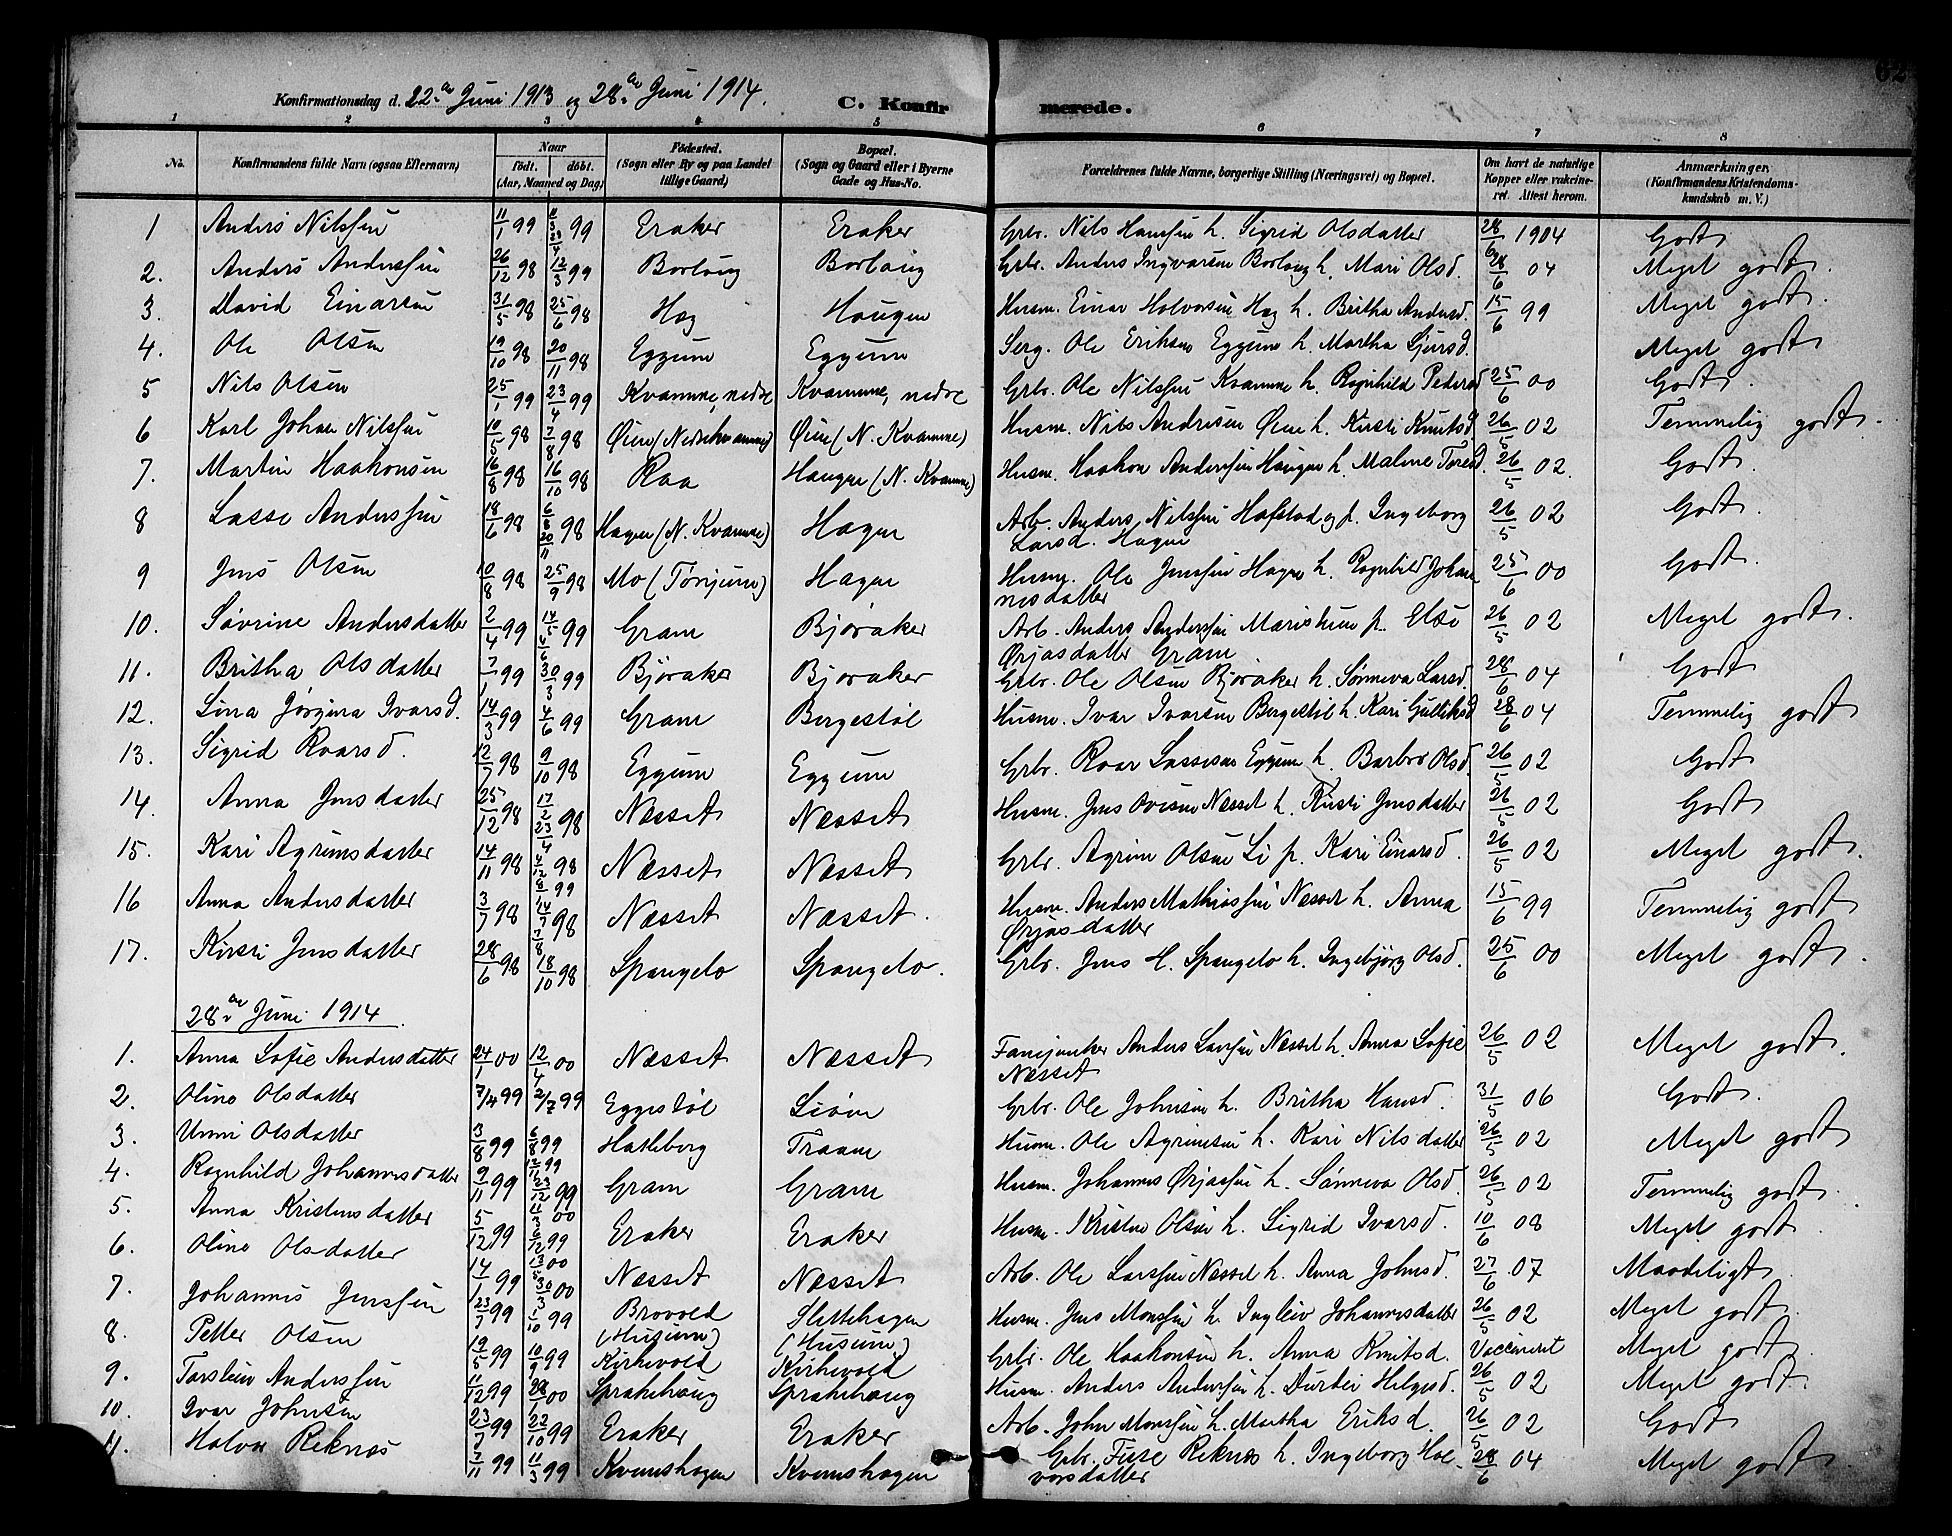 62
Konfirmationsdag d. 22. de Juni 1913 og 28. de Juni 1914.
C. Konfirmerede.
1 2 3 4 5 6 7 8
No. Konfirmandens fulde Navn (ogsaa Efternavn) Naar født. døbt. (Aar, Maaned og Dag) Fødested. (Sogn eller By og paa Landet tillige Gaard) Bopæl. (Sogn og Gaard eller i Byerne Gade og Hus-No. Forældrenes fulde Navne, borgerlige Stilling (Næringsvei) og Bopæl. Om havt de naturlige Kopper eller vakcineret. Attest herom. Anmærkninger. (Konfirmandens Kristendomskundskab m. V.)
1 Anders Nilssen 11/1 99 11/3 23/4 99 Eraker Eraker Grbr. Nils Hanssen h. Sigrid Olsdatter 28/6 1904 Godt
2. Anders Anderssen 26/12 98 12/3 99 Borlaug Borlaug Grbr. Anders Ingvarsen Borlaug h. Mari Olsd. 28/6 04 Meget godt.
3. David Einarsen 31/5 98 25/6 98 Hæg Haugen Husm. Einar Halvorsen Hæg h. Britha Andersd. 15/6 99 Meget godt.
4. Ole Olsen 19/10 98 20/11 98 Eggum Eggum Serg. Ole Eriksen Eggum h. Martha Sjursd. Meget godt
5 Nils Olsen 25/1 99 23/4 99 Kvamme, nedre Kvamme, nedre Grbr. Ole Nilssen Kvamme h. Ragnhild Pedersd 25/6 00 Godt.
6 Karl Johan Nilssen 10/5 98 7/8 98 Øien (Nedrekvamme) Øien (N. Kvamme) Husm. Nils Andresen Øien h. Kirsti Knutsd 26/5 02 Temmelig godt.
7. Martin Haakonsen 16/8 98 16/10 98 Raa Haugen (N. Kvamme) Husm. Haakon Anderssen Haugen h. Malene Toresd. 26/5 02. Godt.
8 Lasse Anderssen 18/6 98 6/8 20/11 98 Hagen (N. Kvamme) Hagen Arb. Anders Nilssen Hafstad og p. Ingeborg 26/5 02 Godt.
Larsd. Hagen
9 Jens Olsen 10/8 98 25/9 98 Mo (Tønjum) Hagen Husm. Ole Jenssen Hagen h. Ragnhild Johan 25/6 00 Godt.
nesdatter
10. Søvrine Andersdatter 2/4 99 14/5 4/6 99 Gram Bjøraker Arb. Anders Anderssen Maristuen p. Else 26/5 02 Meget godt.
Ørjasdatter Gram
11. Britha Olsdatter 7/1 99 30/3 99 Bjøraker Bjøraker Grbr. Ole Olsen Bjøraker h. Sønneva Larsd. 28/6 04 Godt
12. Lina Jørgina Ivarsd. 14/3 99 4/6 99 Gram Bergestøl Husm. Ivar Ivarsen Bergestøl h. Kari Gulliksd 28/6 04 Temmelig godt
13. Sigrid Roarsd. 12/7 98 9/10 98 Eggum Eggum Grbr. Roar Lassesen Eggum h. Barbro Olsd. 26/5 02 Godt
14. Anna Jensdatter 25/12 98 17/2 23/4 98 Næsset Næsset Husm. Jens Ovesen Næsset h. Kirsti Jensdatter 26/5 02 Godt
15. Kari Agrimsdatter 14/11 98 4/12 98 8/1 99 Næsset Næsset Grbr. Agrim Olsen Li p. Kari Einarsd. 26/5 02 Meget godt.
16 Anna Andersdatter 3/7 98 14/7 7/8 98 Næsset Næsset. Husm. Anders Mathiassen Næsset h. Anna 15/6 99 Temmelig godt
Ørjasdatter
17. Kirsti Jensdatter 28/6 98 18/10 98 Spangelo Spangelo. Grbr. Jens H. Spangelo h. Ingebjørg Olsd. 25/6 00 Meget godt.
28. de Juni 1914.
1. Anna Sofie Andersdatter 24/1 00 12/4 00 Næsset Næsset Fanejunker Anders Larssen Næsset h. Anna Sofie 26/5 02 Meget godt.
Næsset
2. Oline Olsdatter 7/4 99 2/7 99 Eggestøl Liøen Grbr. Ole Johnsen h. Britha Hansd. 31/5 06 Godt.
3. Unni Olsdatter 3/8 99 6/8 99 12/11 99 Hatleberg Traaen Husm. Ole Agrimsen h. Kari Nilsdatter 26/5 02 Meget godt
4. Ragnhild Johannesdatter 9/11 99 23/12 99 11/3 00 Gram Gram Husm. Johannes Ørjassen h. Sønneva Olsd. 26/5 02 Temmelig godt.
5. Anna Kristensdatter 5/12 99 6/12 99 13/5 00 Eraker Eraker Husm. Kristen Olsen h. Sigrid Ivarsd. 10/6 08 Meget godt
6. Oline Olsdatter 14/1 99 30/3 00 Næsset Næsset Arb. Ole Larssen Næsset h. Anna Johnsd. 27/6 07 Maadeligt
7. Johannes Jenssen 23/7 99 1/10 99 Brovold (Husum) Slettehagen (Husum) Husm. Jens Monssen h. Ingleiv Johannesdatter 26/5 02 Meget godt.
8. Petter Olsen 19/5 99 10/9 99 Kirkevold Kirkevold Grbr. Ole Haakonsen h. Anna Knutsd. Vaccineret Meget godt.
9. Torstein Anderssen 11/12 99 28/1 00 Sprakehaug Sprakehaug Husm. Anders Anderssen h. Durdei Helgesd. 26/5 02 Meget godt.
10. Ivar Johnsen 23/7 99 22/10 99 Eraker Eraker Arb. John Monssen h. Martha Eriksd. 26/5 02 Godt
11. Halvor Reknæs 7/11 99 11/3 99 Kvemshagen Kvemshagen Grbr. Ingeborg Hal- 28/6 04 Meget godt
vorsdatter